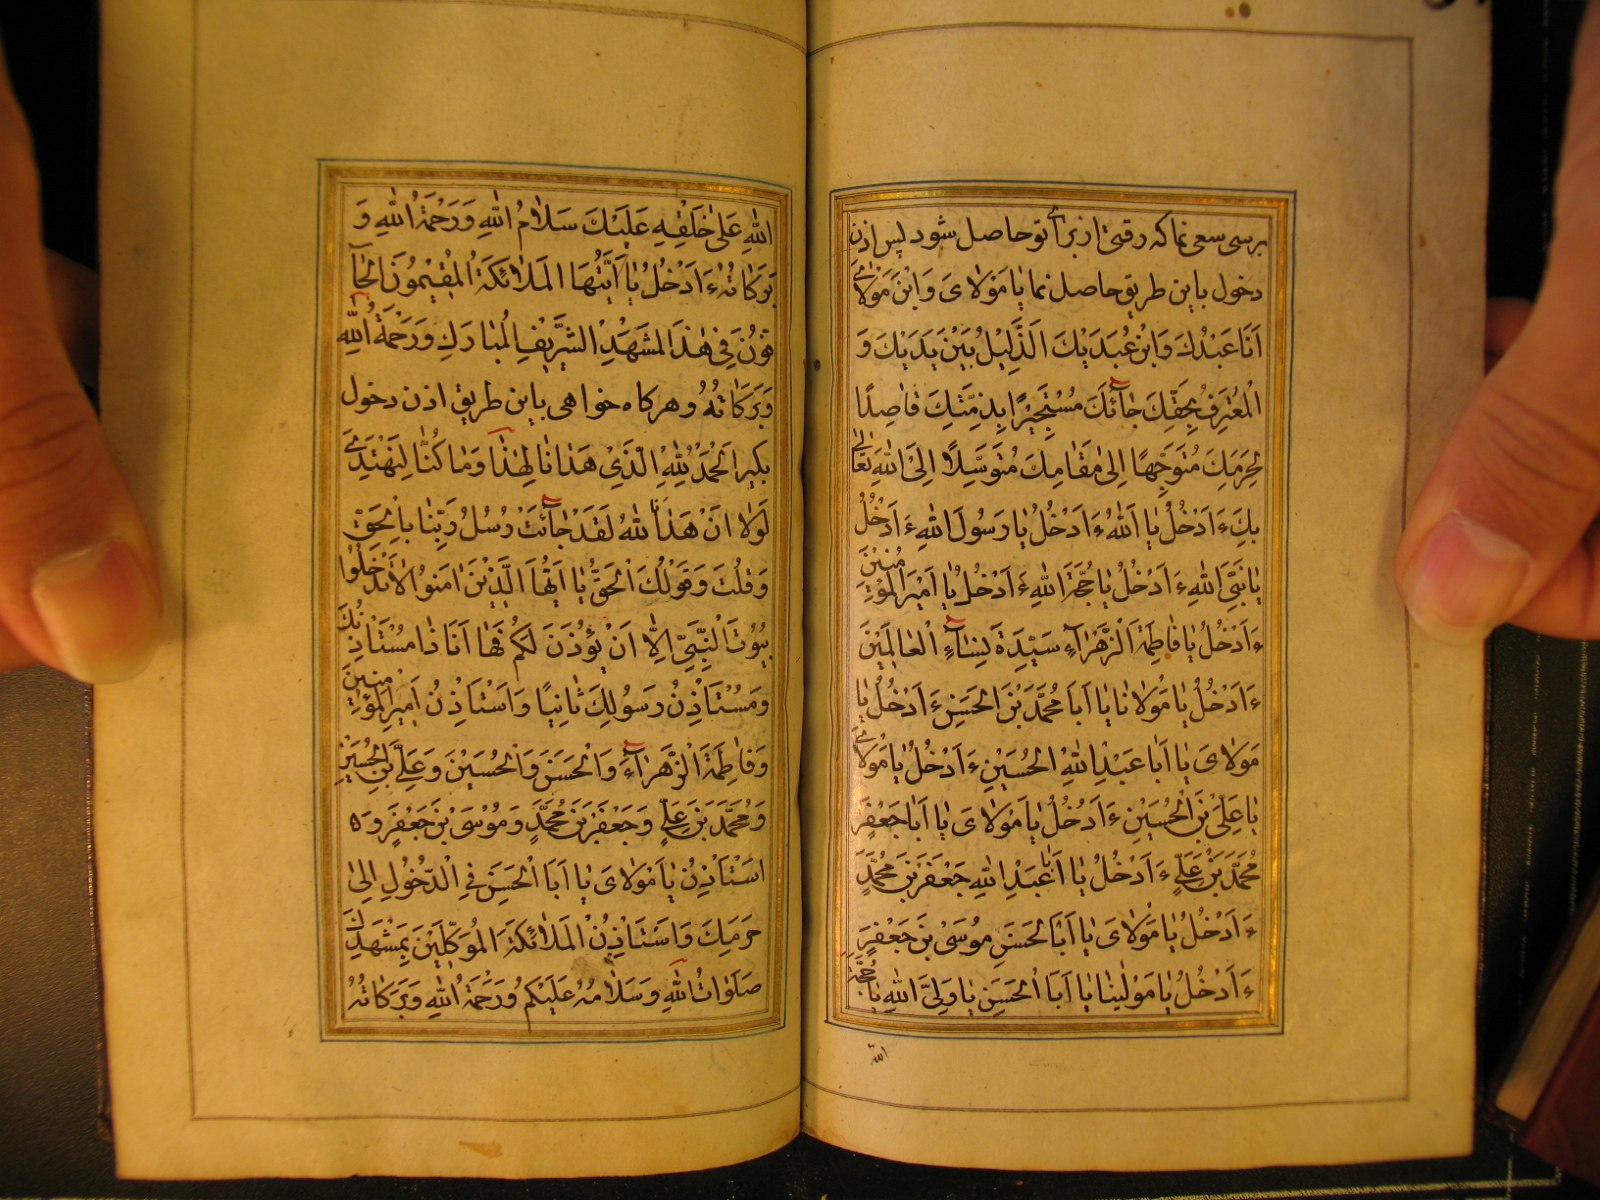 برسی سعی نما که رقتی از برای تو حاصل شود پس اذن
دخول باین طریق حاصل نما یٰا مَوْلٰایَ وَابْنَ مَوْلٰایَ
اَنَا عَبْدُكَ وَابْنُ عَبْدَیْكَ الَذَّلِیْلُ بَیْنَ یَدَیْكَ وَ
الْمُعْتَرِفُ بِحَقِّكَ جٰآئَكَ مُسْتَجِیْرًا بِذِمَّتِكَ قٰاصِدًا
لِحَرَمِكَ مُتَوَجِّهًا اِلیٰ مَقٰامِكَ مُتَوَسِّلًا اِلَیَ اللهِ تَعٰالیٰ
بِكَ ءَاَدْخُلُ یٰا اَللهُ ءَاَدْخُلُ یٰا رَسُولَ اللهِ ءَاَدْخُلُ
یٰا نَبِیَّ اللهِ ءَاَدْخُلُ یٰا حُجَّةَ اللهِ ءَاَدْخُلُ یٰا اَمِیْرَ الْمُؤمِنِیْنَ
ءَاَدْخُلُ یٰا فٰاطِمَةَ الْزَّهْرٰآءِ سَیِّدَةَ نِسٰآءِ الْعٰالَمِیْنَ
ءَاَدْخُلُ یٰا مَوْلٰانٰا یٰا اَبٰا مُحَمَّدَ بْنَ الْحَسَنِ ءَاَدْخُلُ یٰا
مَوْلٰایَ یٰا اَبٰا عَبْدِ اللهِ الْحُسَیْنِ ءَاَدْخُلُ یٰا مَوْلٰایَ
یٰا عَلِیَّ بْنَ الْحُسَیْنِ ءَاَدْخُلُ یٰا مَوْلٰایَ یٰا اَبٰا جَعْفَرٍ
مُحَمَّدَ بْنَ عَلِیٍّ ءَاَدْخُلُ یٰا اَبٰا عَبْدِ اللهِ جَعْفَرَ بْنَ مُحَمَّدٍ
ءَاَدْخُلُ یٰا مَوْلٰایَ یٰا اَبَا الْحَسَنِ مُوسَیَ بْنَ جَعْفَرٍ
ءَاَدْخُلُ یٰا مَوْلَینٰا یٰا اَبَا الْحَسَنِ یٰا وَلِیَّ اللهِ یٰا حُجَّةَ
الله
اللهِ عَلیٰ خَلْقِهِ عَلَیْكَ سَلٰامُ اللهِ وَرَحْمَةُ اللهِ وَ
بَرَكٰاتُهُ ءَاَدْخُلُ یٰا اَیَّتُهَا الْمَلٰائِكَةُ الْمُقِیْمُونَ الْحٰآ
فّوُنَ فِی هٰذَا الْمَشْهَدِ الْشَّرِیْفِ الْمُبٰارَكِ وَرَحْمَةُ اللهِ
وَبَرَكٰاتُهُ وهرکاه خواهی باین طریق اذن دخول
بکیر اَلْحَمْدُ لِلّٰهِ الَّذِیْ هَدٰانٰا لِهٰذٰا وَمٰا كُنّٰا لِنَهْتَدِیَ
لَوْلٰا اَنْ هَدٰنَا اللهُ لَقَدْ جٰآئَتْ رُسُلُ رَبِّنٰا بِالْحَقِّ
وَقُلْتَ وَقَوْلُكَ الْحَقُّ یٰا اَیُّهَا الَّذِیْنَ اٰمَنُوا لٰاتَدْخُلُوا
بُیُوْتَ الْنَّبِیِّ اِلّٰا اَنْ یُؤْذَنَ لَكُمْ فَهٰا اَنَا ذٰا مُسْتَاْذِنُكَ
وَمُسْتَاْذِنُ رَسُولِكَ ثٰانِیًا وَاَسْتَاْذِنُ اَمِیْرَ الْمُؤمِنِیْنَ
وَفٰاطِمَةَ الْزَّهْرٰآءِ وَالْحَسَنَ وَالْحُسَیْنَ وَعَلِیَّ بْنَ الْحُسَیْنِ
وَمُحَمَّدَ بْنَ عَلِیٍّ وَجَعْفَرَ بْنَ مُحَمَّدٍ وَمُوْسَیَ بْنَ جَعْفَرٍ وَ
اَسْتَاْذِنُ یٰا مَوْلٰایَ یٰا اَبَا الْحَسَنِ فِی الْدُّخُولِ اِلیٰ
حَرَمِكَ وَاَسْتَاْذِنُ الْمَلٰائِكَةَ الْمُوَكِّلِیْنَ بِمَشْهَدِكَ
صَلَوٰاتُ اللهِ وَسَلٰامُهُ عَلَیْكُمْ وَرَحْمَةُ اللهِ وَبَرَكٰاتُهُ